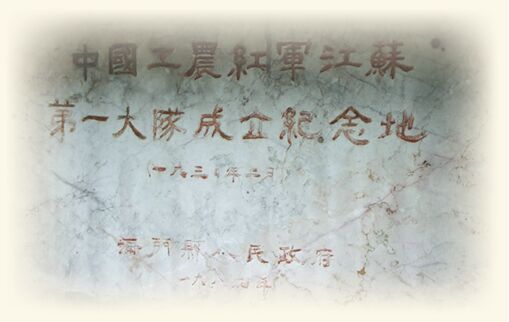 中國工農紅軍江蘇
第一大隊成立紀念地
(一九三〇年二月)
海門縣人民政府
一九八九年